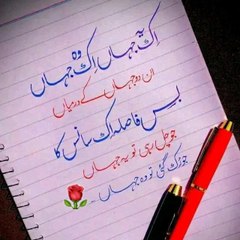 اِک یہ جہاں اِک وہ جہاں
ان دو جہاں کے درمیاں
بس فاصلہ اک سانس کا
جو چل رہی تو یہ جہاں
جو رک گئی تو وہ جہاں